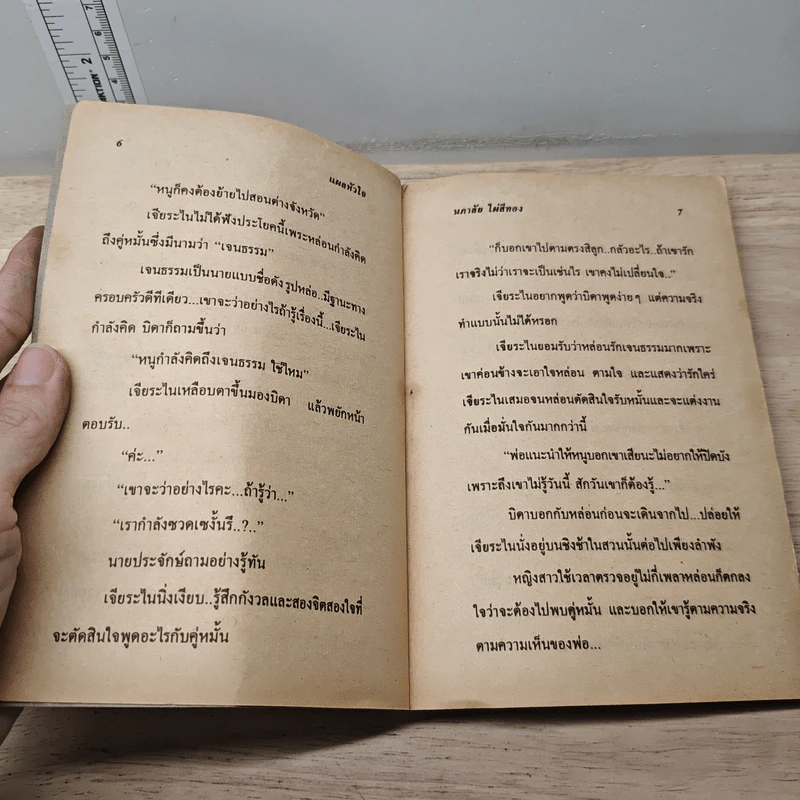 6
แผลหัวใจ
“หนูก็คงต้องย้ายไปสอนต่างจังหวัด”
เจียระไนไม่ได้ฟังประโยคนี้เพระหล่อนกำลังคิด
ถึงคู่หมั้นซึ่งมีนามว่า “เจนธรรม”
เจนธรรมเป็นนายแบบชื่อดัง รูปหล่อ..มีฐานะทาง
ครอบครัวดีทีเดียว...เขาจะว่าอย่างไรถ้ารู้เรื่องนี้...เจียระไน
กำลังคิด บิดาก็ถามขึ้นว่า
“หนูกำลังคิดถึงเจนธรรม ใช่ไหม”
เจียระไนเหลือบตาขึ้นมองบิดา แล้วพยักหน้า
ตอบรับ..
“ค่ะ...”
“เขาจะว่าอย่างไรคะ...ถ้ารู้ว่า...”
“เรากำลังซวดเซงั้นรึ..?..”
นายประจักษ์ถามอย่างรู้ทัน
เจียระไนนิ่งเงียบ..รู้สึกกังวลและสองจิตสองใจที่
จะตัดสินใจพูดอะไรกับคู่หมั้น
นภาลัย ไผ่สีทอง
7
“ก็บอกเขาไปตามตรงสิลูก..กลัวอะไร..ถ้าเขารัก
เราจริงไม่ว่าเราจะเป็นเช่นไร เขาคงไม่เปลี่ยนใจ..”
เจียระไนอยากพูดว่าบิดาพูดง่ายๆ แต่ความจริง
ทำแบบนั้นไม่ได้หรอก
เจียระไนยอมรับว่าหล่อนรักเจนธรรมมากเพราะ
เขาค่อนข้างจะเอาใจหล่อน ตามใจ และแสดงว่ารักใคร่
เจียระไนเสมอจนหล่อนตัดสินใจรับหมั้นและจะแต่งงาน
กันเมื่อมั่นใจกันมากกว่านี้
“พ่อแนะนำให้หนูบอกเขาเสียนะไม่อยากให้ปิดบัง
เพราะถึงเขาไม่รู้วันนี้ สักวันเขาก็ต้องรู้...”
บิดาบอกกับหล่อนก่อนจะเดินจากไป...ปล่อยให้
เจียระไนนั่งอยู่บนชิงช้าในสวนนั้นต่อไปเพียงลำพัง
หญิงสาวใช้เวลาตรวจอยู่ไม่กี่เพลาหล่อนก็ตกลง
ใจว่าจะต้องไปพบคู่หมั้น และบอกให้เขารู้ตามความจริง
ตามความเห็นของพ่อ...